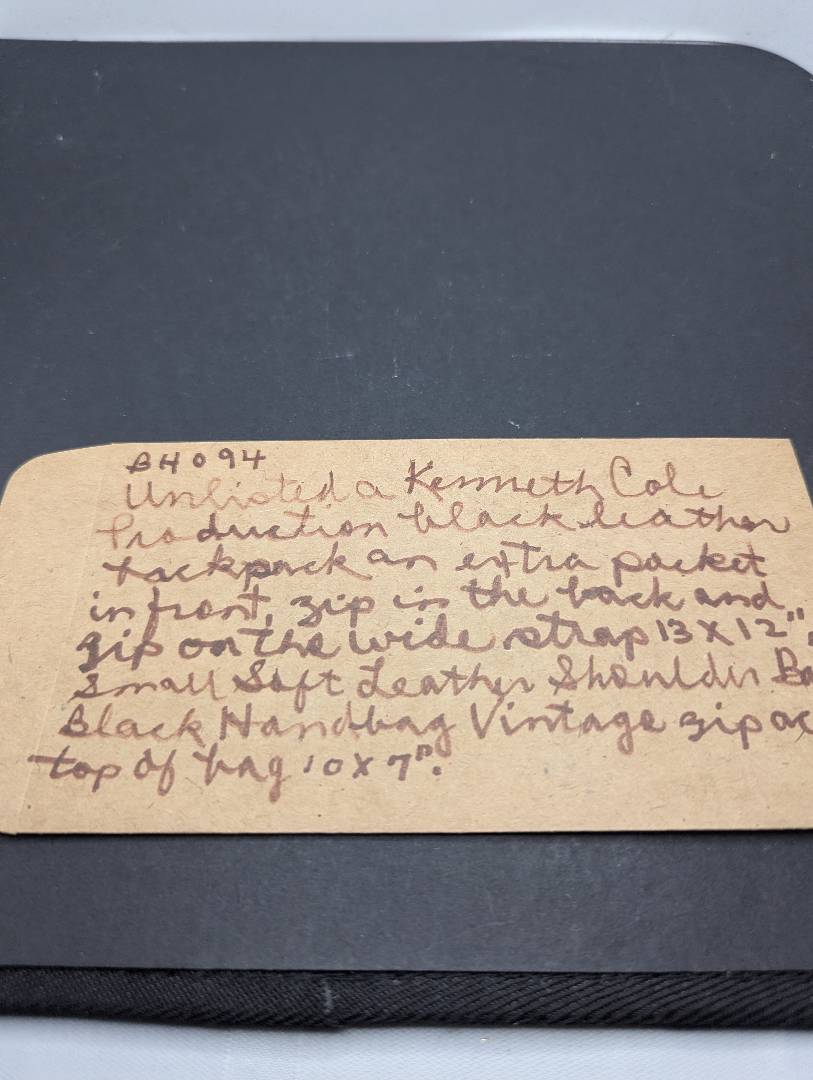 BH094
Unlisted a Kenneth Cole
Production black leather
backpack an extra pocket
in front, zip in the back and
zip on the wide strap 13 X 12".
Small Soft Leather Shoulder Ba
Black Handbag Vintage zip ac
top of bag 10 X 7".